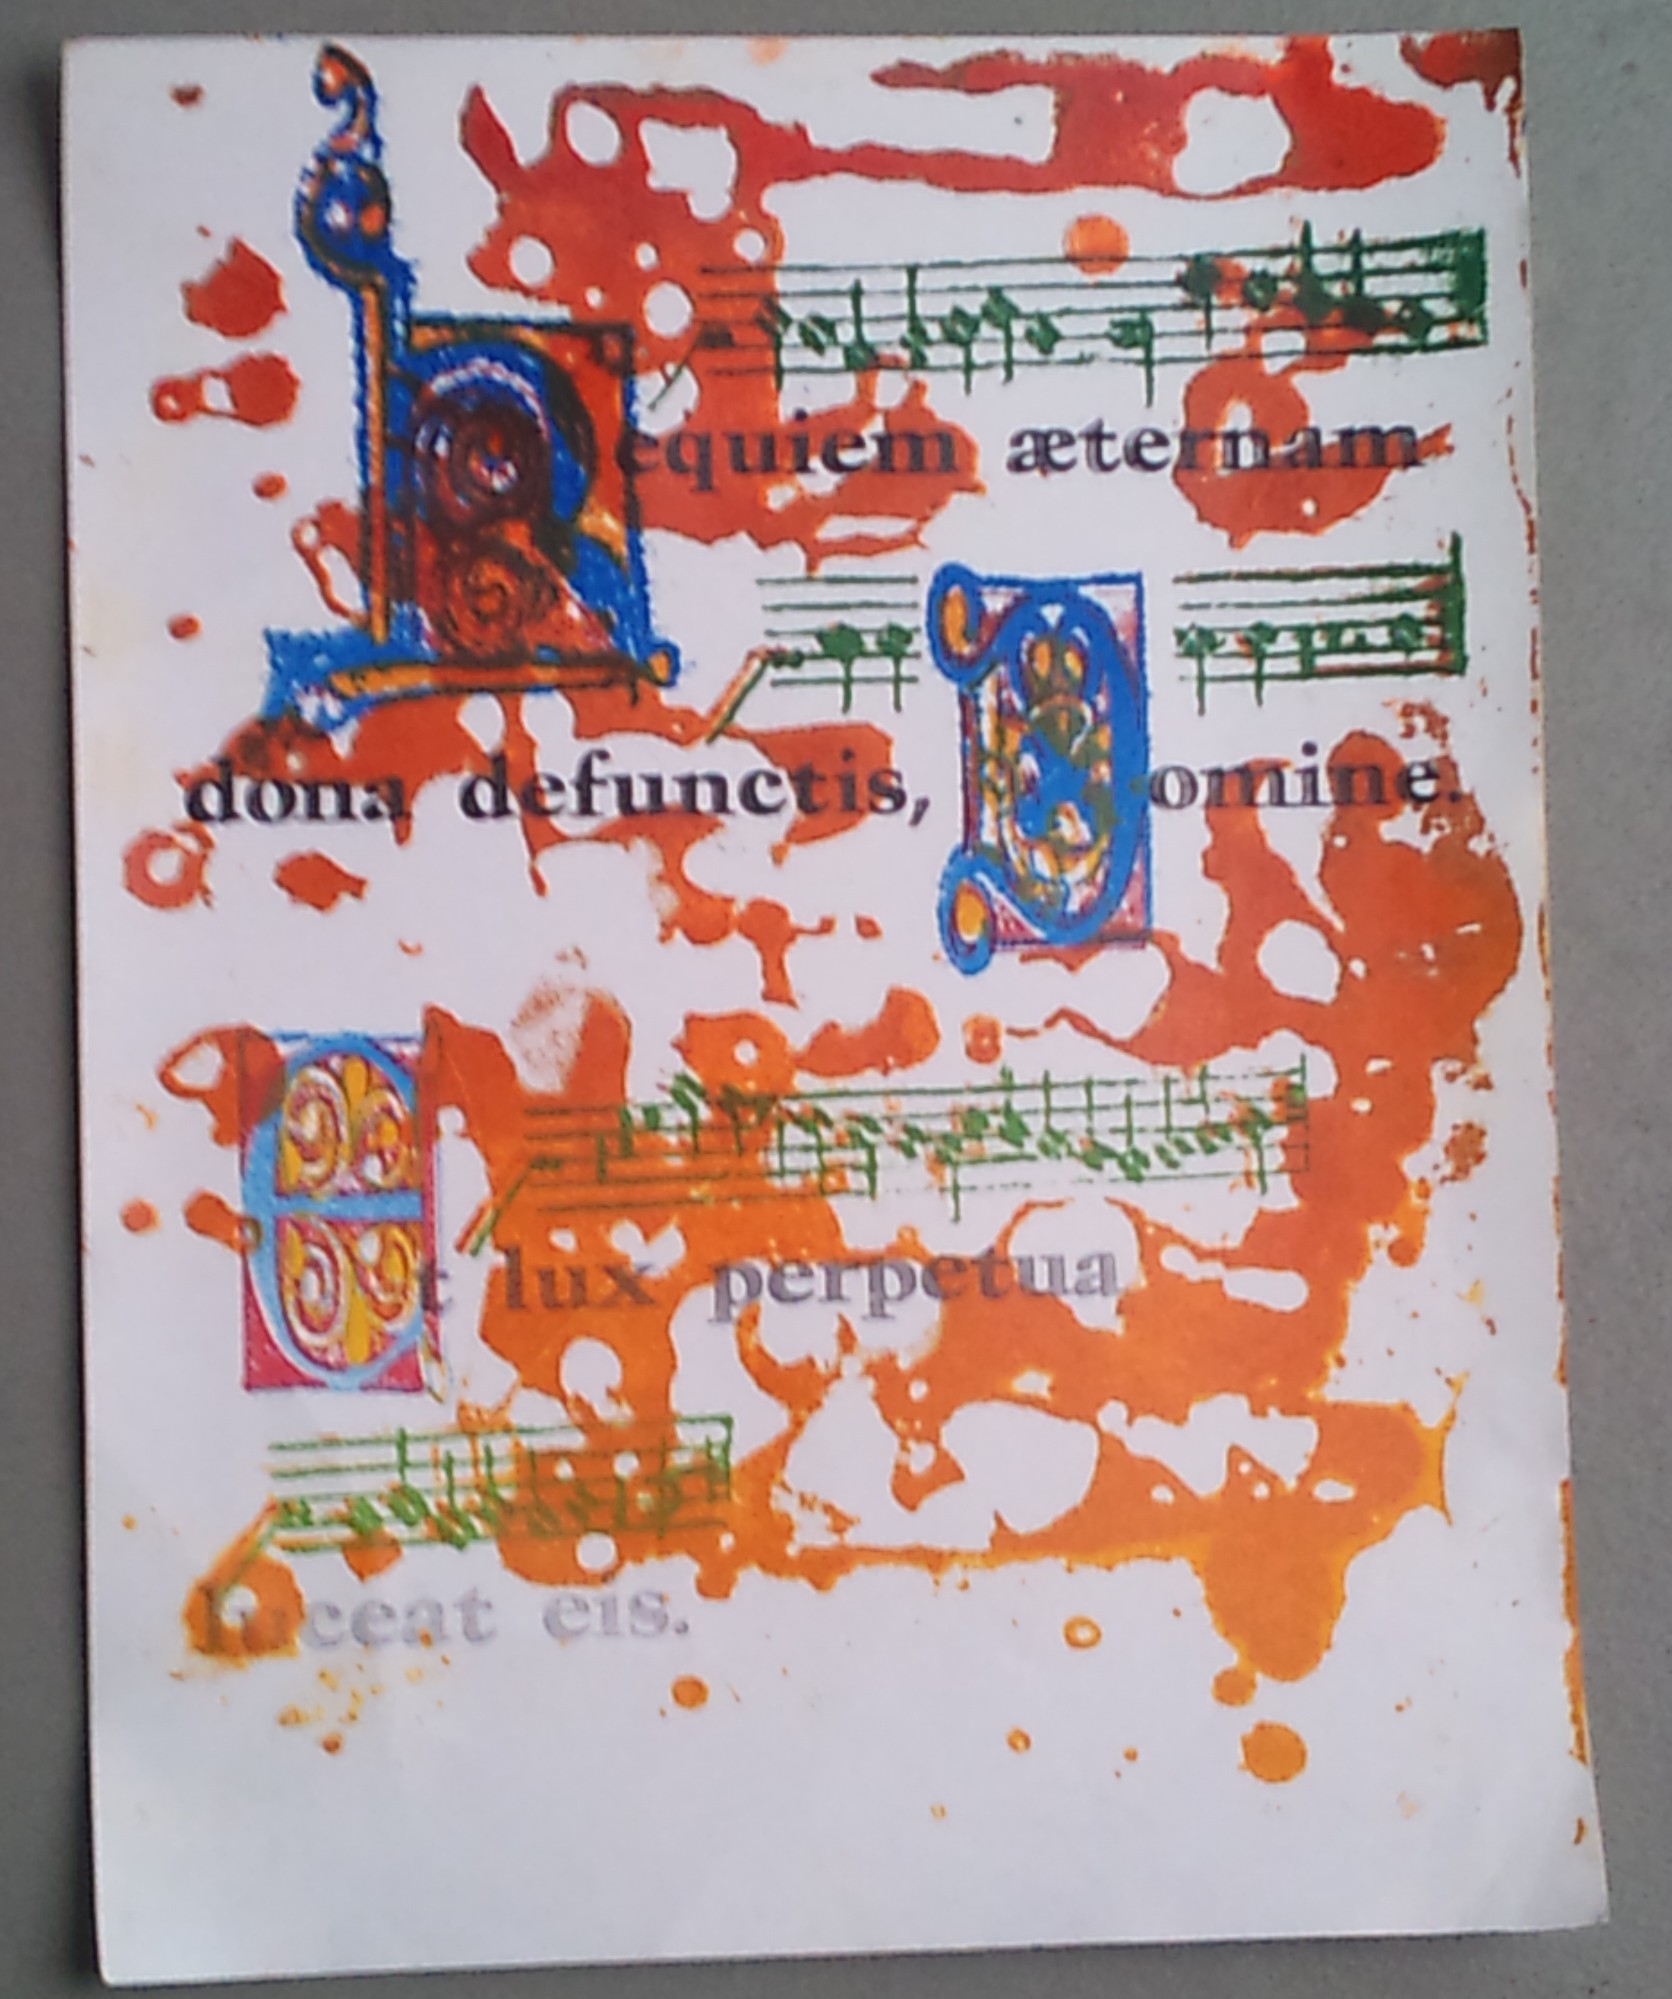 Requiem æternam
dona defunctis, Domine.
Et lux perpetua
luceat eis.